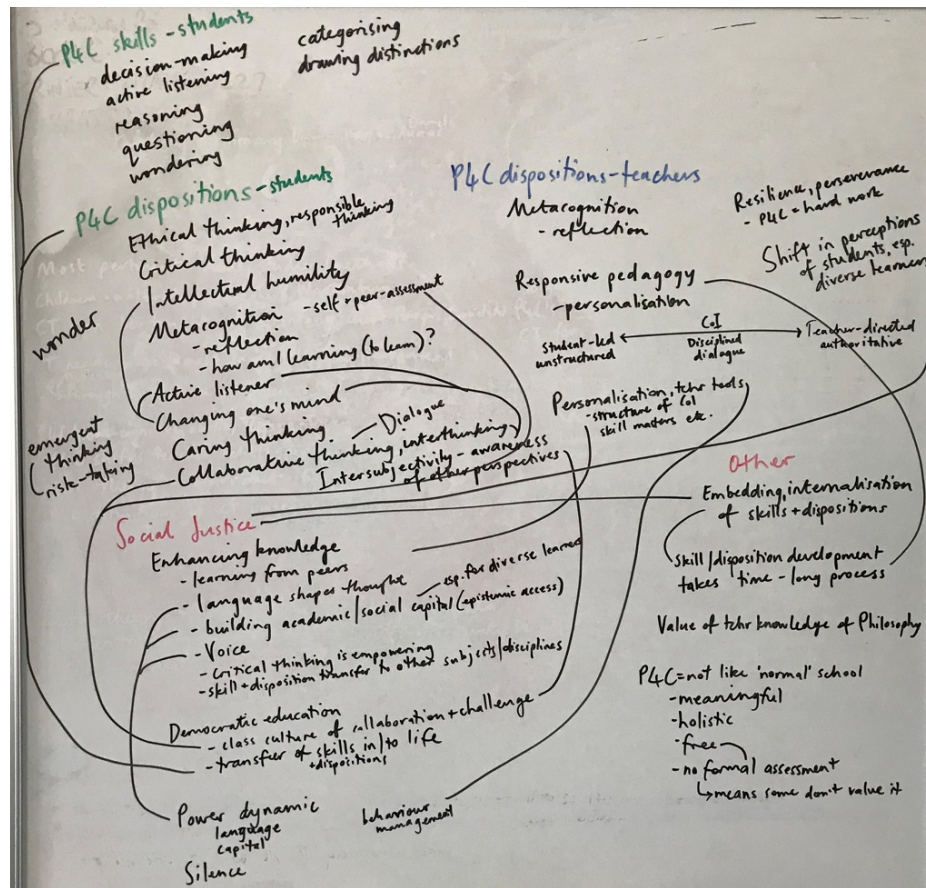 P4C skills - students
decision-making
active listening
reasoning
questioning
wondering
categorising
drawing distinctions
P4C dispositions - students
Ethical thinking, responsible
thinking
Critical thinking
Intellectual humility
Metacognition - self + peer-assessment
- reflection
- how am I learning (to learn)?
Active listener
Changing one's mind
Caring thinking
Collaborative thinking, interthinking
Dialogue
Intersubjectivity - awareness
of other perspectives
wonder
emergent
thinking
risk-taking
P4C dispositions - teachers
Metacognition
- reflection
Resilience, perseverance
- P4C = hard work
Shift in perceptions
of students, esp.
diverse learners
Responsive pedagogy
- personalisation
CoI
student-led
unstructured
Disciplined
dialogue
Teacher-directed
authoritative
Personalisation, tchr tools
- structure of CoI
skill matters etc.
Social Justice
Enhancing knowledge
- learning from peers
- language shapes thought
esp. for diverse learners
- building academic/social capital (epistemic access)
- Voice
- critical thinking is empowering
- skill + disposition transfer to other subjects/disciplines
Democratic education
- class culture of collaboration + challenge
- transfer of skills in/to life
+ dispositions
Power dynamic
language
capital
Silence
behaviour
management
Other
Embedding, internalisation
of skills + dispositions
Skill/disposition development
takes time - long process
Value of tchr knowledge of Philosophy
P4C = not like 'normal' school
- meaningful
- holistic
- free
- no formal assessment
↳ means some don't value it